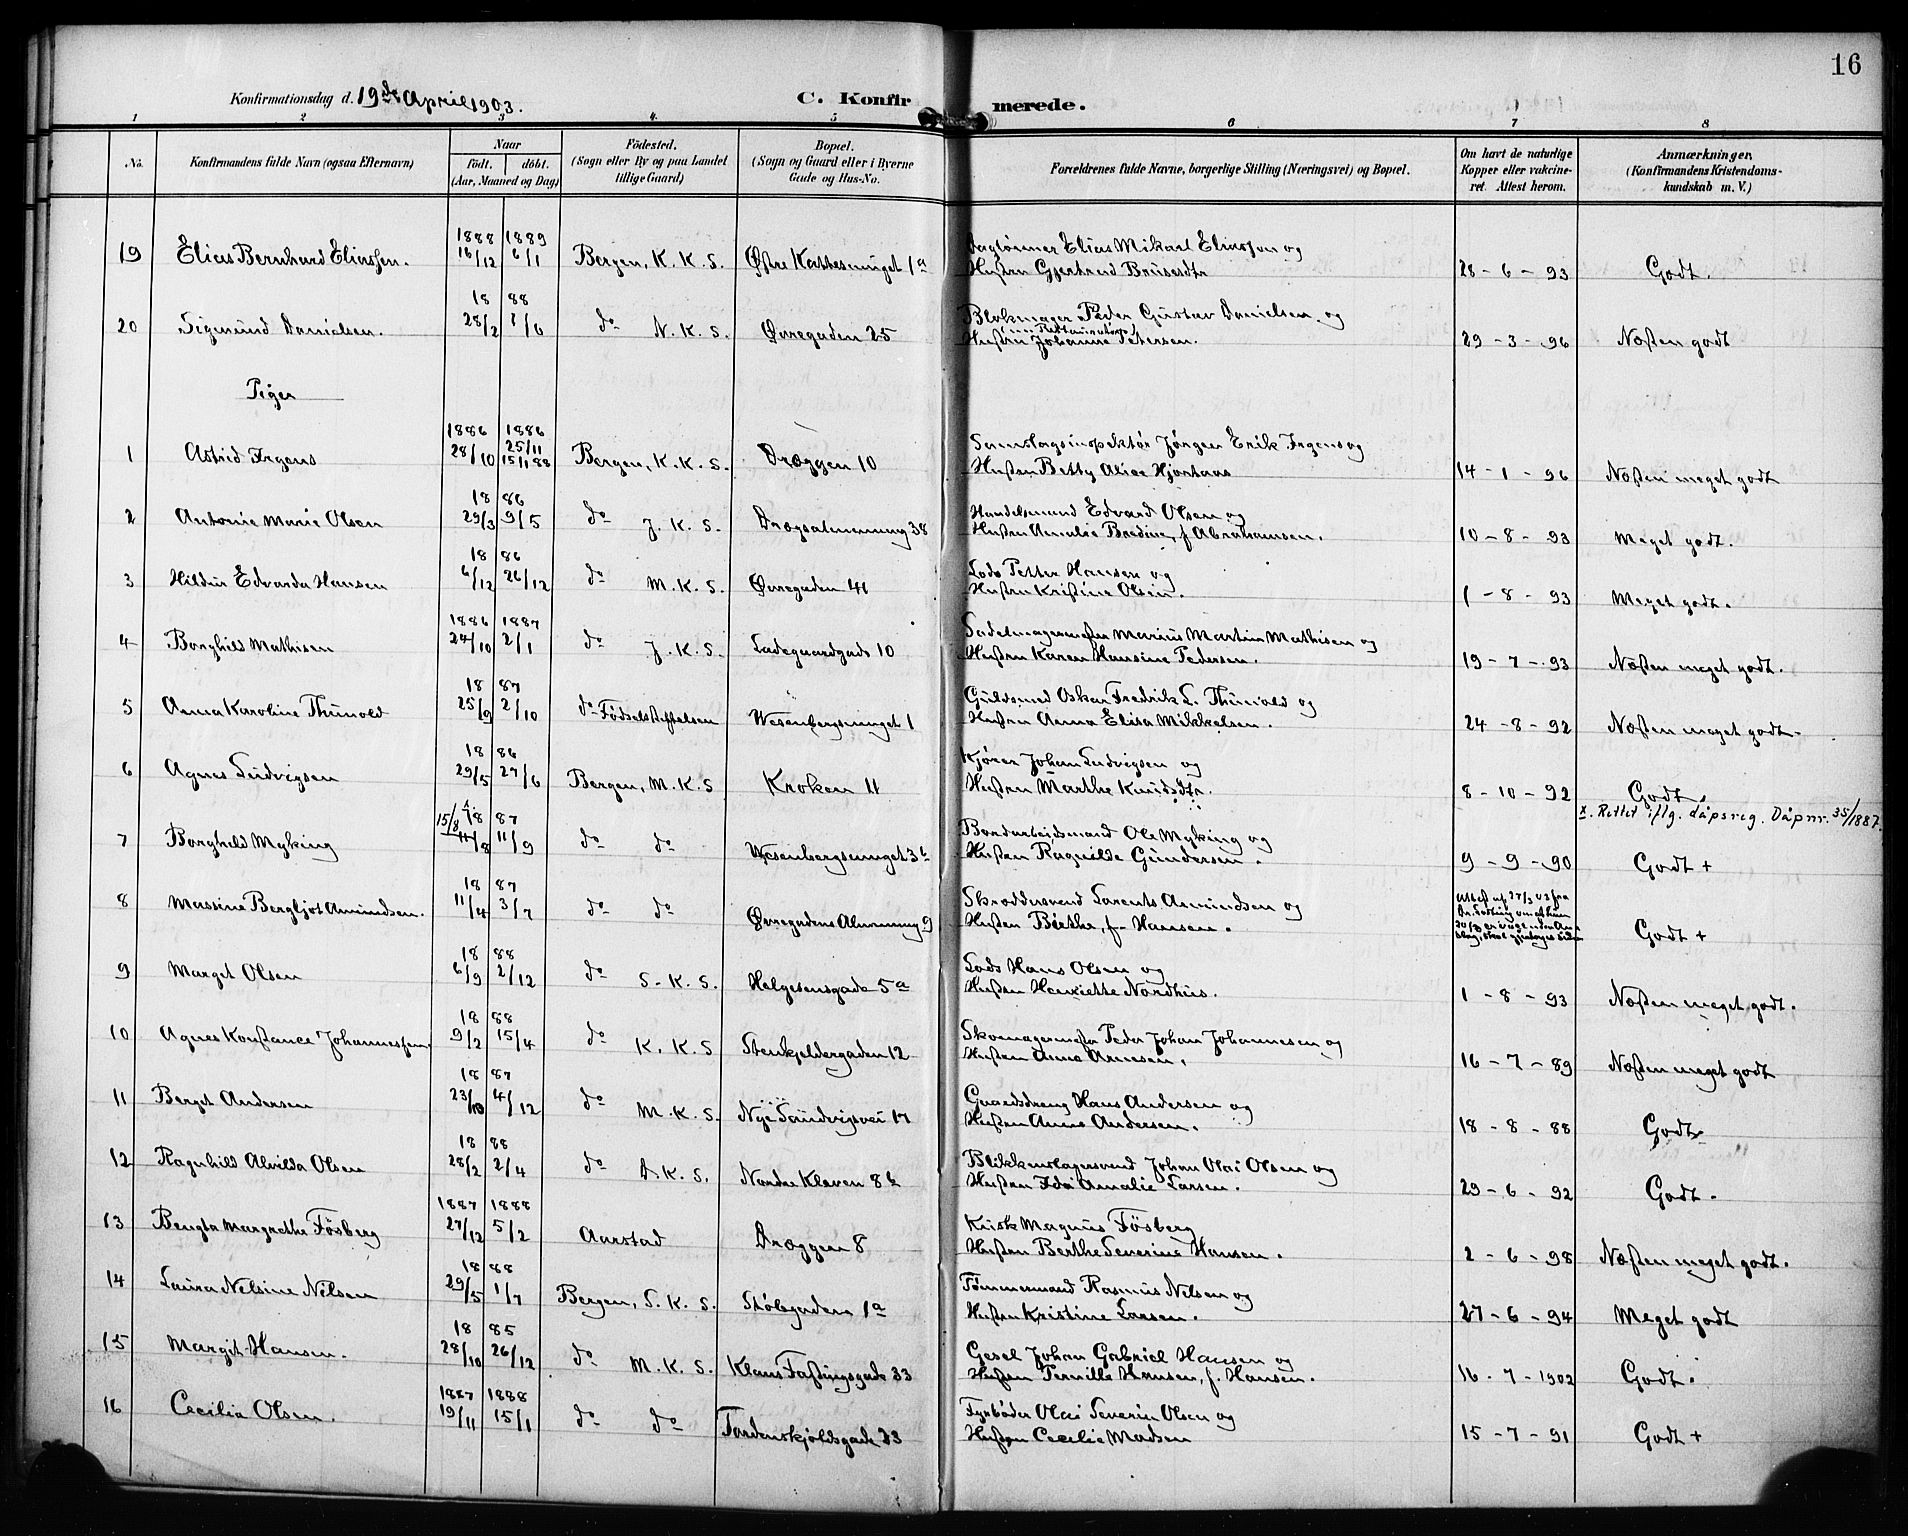 16
Konfirmationsdag d. 19de April 1903.
C. Konfirmerede.
1 2 3 4. 5 6 7 8
No. Konfirmandens fulde Navn (ogsaa Efternavn) Naar födt. döbt. (Aar, Maaned og Dag) Födested. (Sogn eller By og paa Landet tillige Gaard) Bopæl. (Sogn og Gaard eller i Byerne Gade og Hus-No. Forældrenes fulde Navne, borgerlige Stilling (Næringsvei) og Bopæl. Om havt de naturlige Kopper eller vakcineret. Attest herom. Anmærkninger. (Konfirmandens Kristendomskundskab m. V.)
19 Elias Bernhard Eliassen. 1888 16/12 1889 6/1 Bergen, K. K. S. Østre Kattesmuget 1a Dagtönner Elias Mikael Eliassen og
Hustru Gjertrud Brüsesdtr 28-6-93 Godt.
20 Sigmund Danielsen. 1888 28/2 do N. K. S. Øvregaden 25 Blokmager Peder Gustav Danielsen og
Hustru Johanne Petersen. 29-3-96 Næsten godt
Piger
1 Astrid Irgens 1886 28/10 1886 25/11 15/1 88 Bergen, K. K. S. Dræggen 10 Jørgen Erik Irgens og
Hustru Betty Alice Hjortaas 14-1-96 Næsten meget godt
2 Antonie Marie Olsen 1886 29/3 9/5 do J. K. S. Drægsalmenning 38 Handelsmand Edvard Olsen og
Hustru Amalie Bredine, f. Abrahamsen. 10-8-93 Meget godt.
3 Hildur Edvarda Hansen 1886 6/12 26/12 do M. K. S. Øvregaden 41 Lods Petter Hansen og
Hustru Kristine Olsen. 1-8-93 Meget godt.
4 Borghild Mathisen 1886 24/10 1887 2/1 do J. K. S. Ladegaardgade 10 Sadelmagermester Marius Martin Mathisen og
Hustru Karen Hansine Pedersen. 19-7-93 Næsten meget godt.
5 Anna Karoline Thunold 1887 25/9 2/10 do Födselsstiftelsen Wesenbergsmuget 1 Guldsmed Oskar Fredrik L. Thunold og
Hustru Anna Elisa Mikkelsen. 24-8-92 Næsten meget godt.
6 Agnes Ludvigsen 1886 29/5 27/6 Bergen, M. K. S Kroken 11 Kjører Johan Ludvigsen og
Hustru Marthe Knudsdtr. 8-10-92 Godt.
x. Rettet iflg. dåpsreg. Dåpnr. 35/1887.
7 Borghild Myking 15/8 x. 1887 11/8 11/9 do do Wesenbergsmuget 3b Bordarbeidsmand Ole Myking og
Hustru Ragnilde Gundersen. 9-9-90 Godt +
8 Massine Bergljot Amundsen. 1887 11/4 3/7 do do Øvregadens Almenning 9 Skræddersvend Larents Amundsen og
Hustru Berthe, f. Hansen. Attest af 27/3 02 fra Godt +
9 Marget Olsen 1888 6/9 2/12 do S. K. S. Helgesensgade 5a Lods Hans Olsen og
Hustru Henriette Nordhus. 1-8-93 Næsten meget godt.
10 Agnes Konstance Johannessen. 1888 9/2 15/4 do K. K. S Stenkjeldergaden 12 Skomagermester Peder Johan Johannesen og
Hustru Anna Arnesen. 16-7-89 Næsten meget godt
11 Berget Andersen 1887 23/10 4/12 do M. K. S. Nye Sandvigsvei 17 Gaardsdreng Hans Andersen og
Hustru Anna Andersen. 18-8-88 Godt
12 Ragnhild Alvilda Olsen 1888 28/2 2/4 do D. K. S. Nordre Kleven 8b Blikkenslagersvend Johan Olai Olsen og
Hustru Ida Amalie Larsen. 29-6-92 Godt.
13 Bengta Margrethe Fösberg 1887 27/12 1888 5/2 Aarstad Dræggen 8 Kusk Magnus Fösberg
Hustru Berthe Severine Hansen. 2-6-98 Næsten meget godt.
14 Laura Nelsine Nilsen 1888 29/5 1/7 Bergen, S. K. S. Stølegaden 1a Tömmermand Rasmus Nilsen og
Hustru Kristine Larsen. 27-6-94 Meget godt
15 Margit Hansen. 1885 28/10 26/12 do M. K. S. Klaus Fastingsgade 33 Gesel Johan Gabriel Hansen og
Hustru Pernille Hansen, f. Hansen. 16-7-1902 Godt.
16 Cecilia Olsen. 1887 19/11 1888 15/1 do do Tordenskjöldsgade 33 Fyrböder Olai Severin Olsen og
Hustru Cecilie Madsen 15-7-91 Godt +